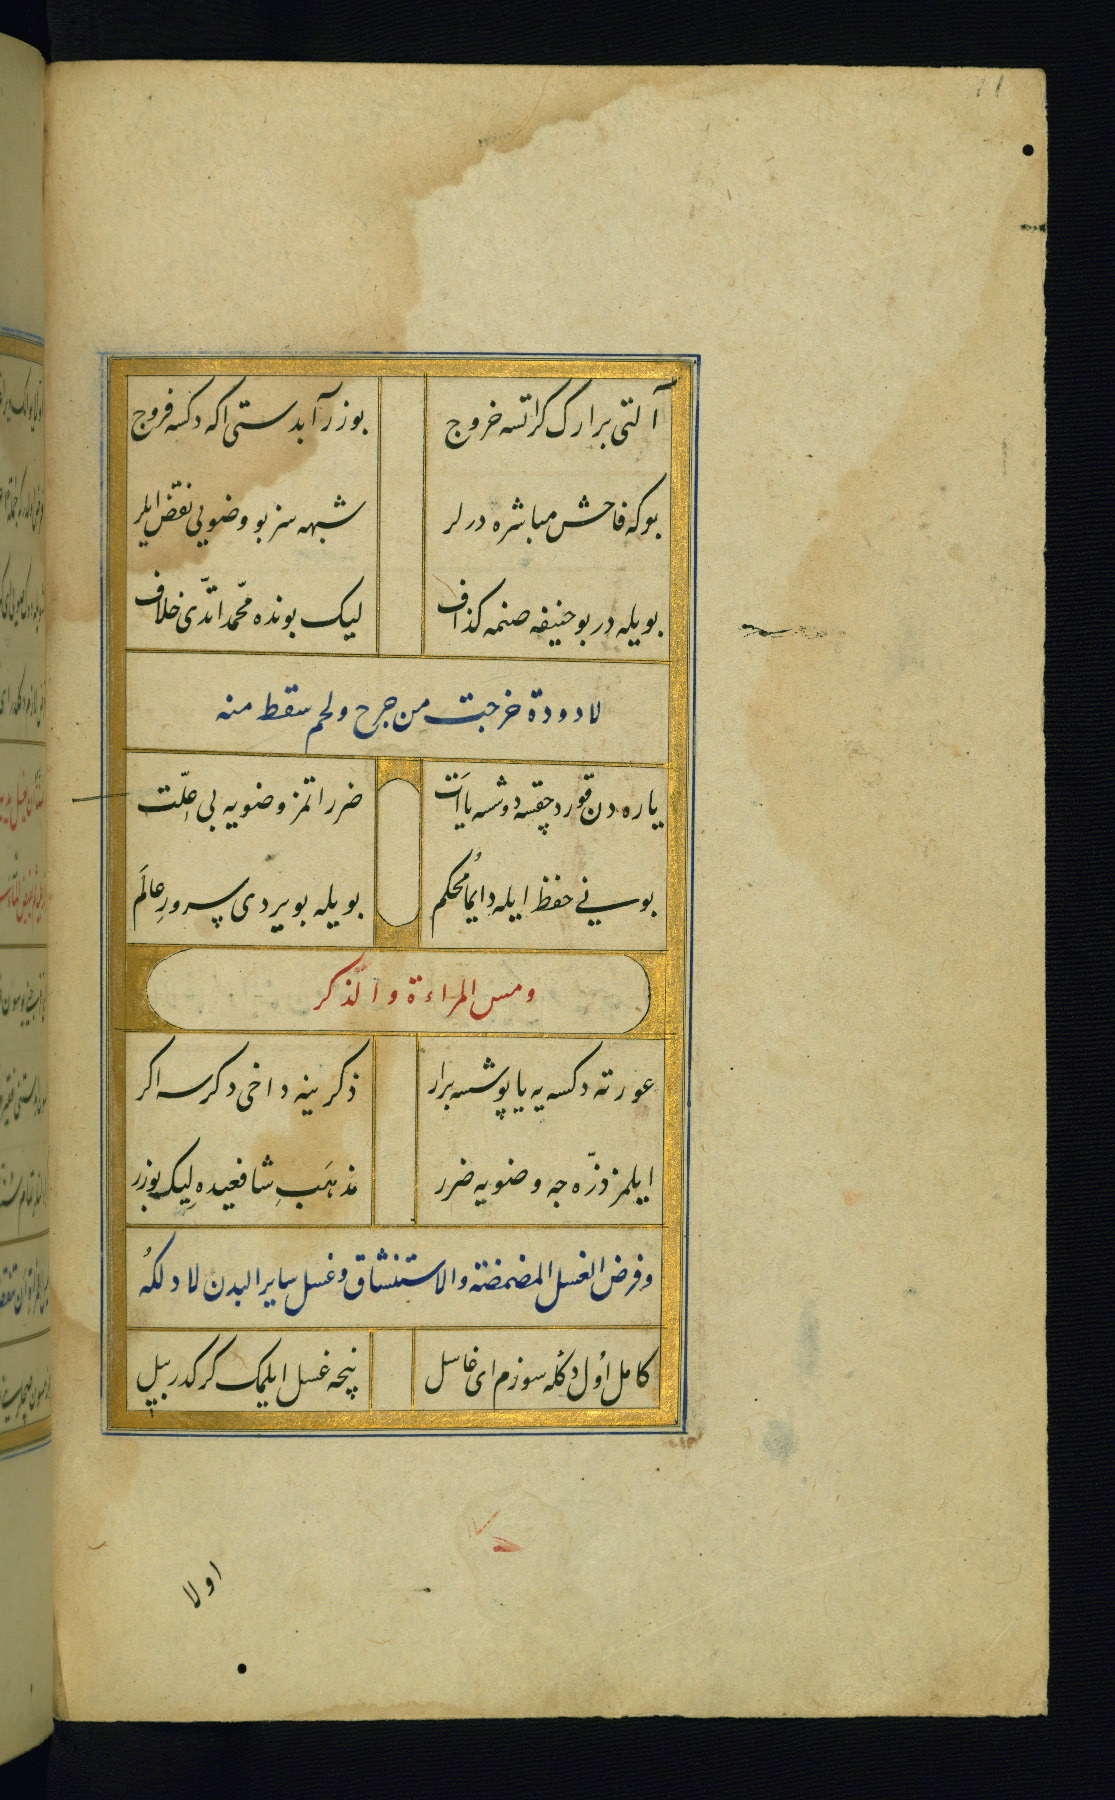 آلتی بر ارک کر اتسه خروج بوزر آبدستی اکه دکسه فروج
بوکه فاحش مباشره درلر شبهه سز بو وضویی نقض ایلر
بویله در بو حنیفه صنمه کذاف لیک بونده محمّد اتدّی خلاف
لا دودة خرجت من جرح ولحم سقط منه
یاره دن قورد چقسه دوشسه یا ات ضرر اتمز وضویه بی علّت
بوسنی حفظ ایله دایُما محکم بویله بویردی سرورِ عالَم
ومس المراءة والذّکر
عورته دکسه یه یاپوشسه برار ذکرینه داخی دکرسه اکر
ایلمز ذرّه جه وضویه ضرر مذهَبِ شافعیده لیک بوزر
وفرض الغسل المضمضة والاستنشاق وغسل سایر البدن لا دلکهُ
کامل اُول دکله سوزم ای غاسل نیجه غسل ایلمک کرکدر بیل
اولا